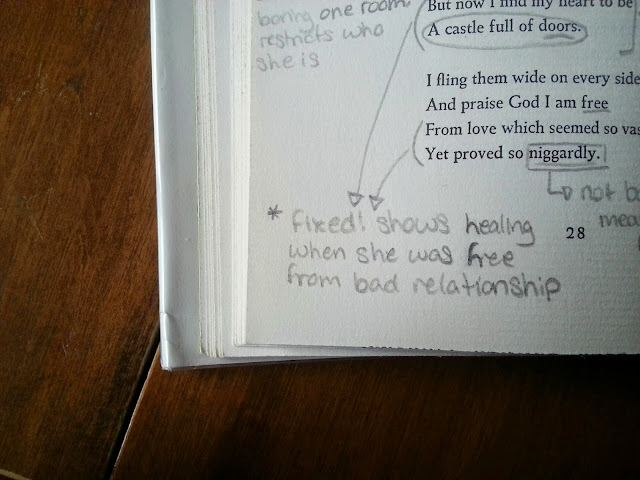 boring one room,
restricts who
she is
But now I find my heart to be
A castle full of doors.
I fling them wide on every side
And praise God I am free
From love which seemed so
Yet proved so niggardly.
not
* fixed! shows healing
when she was free
from bad relationship
28